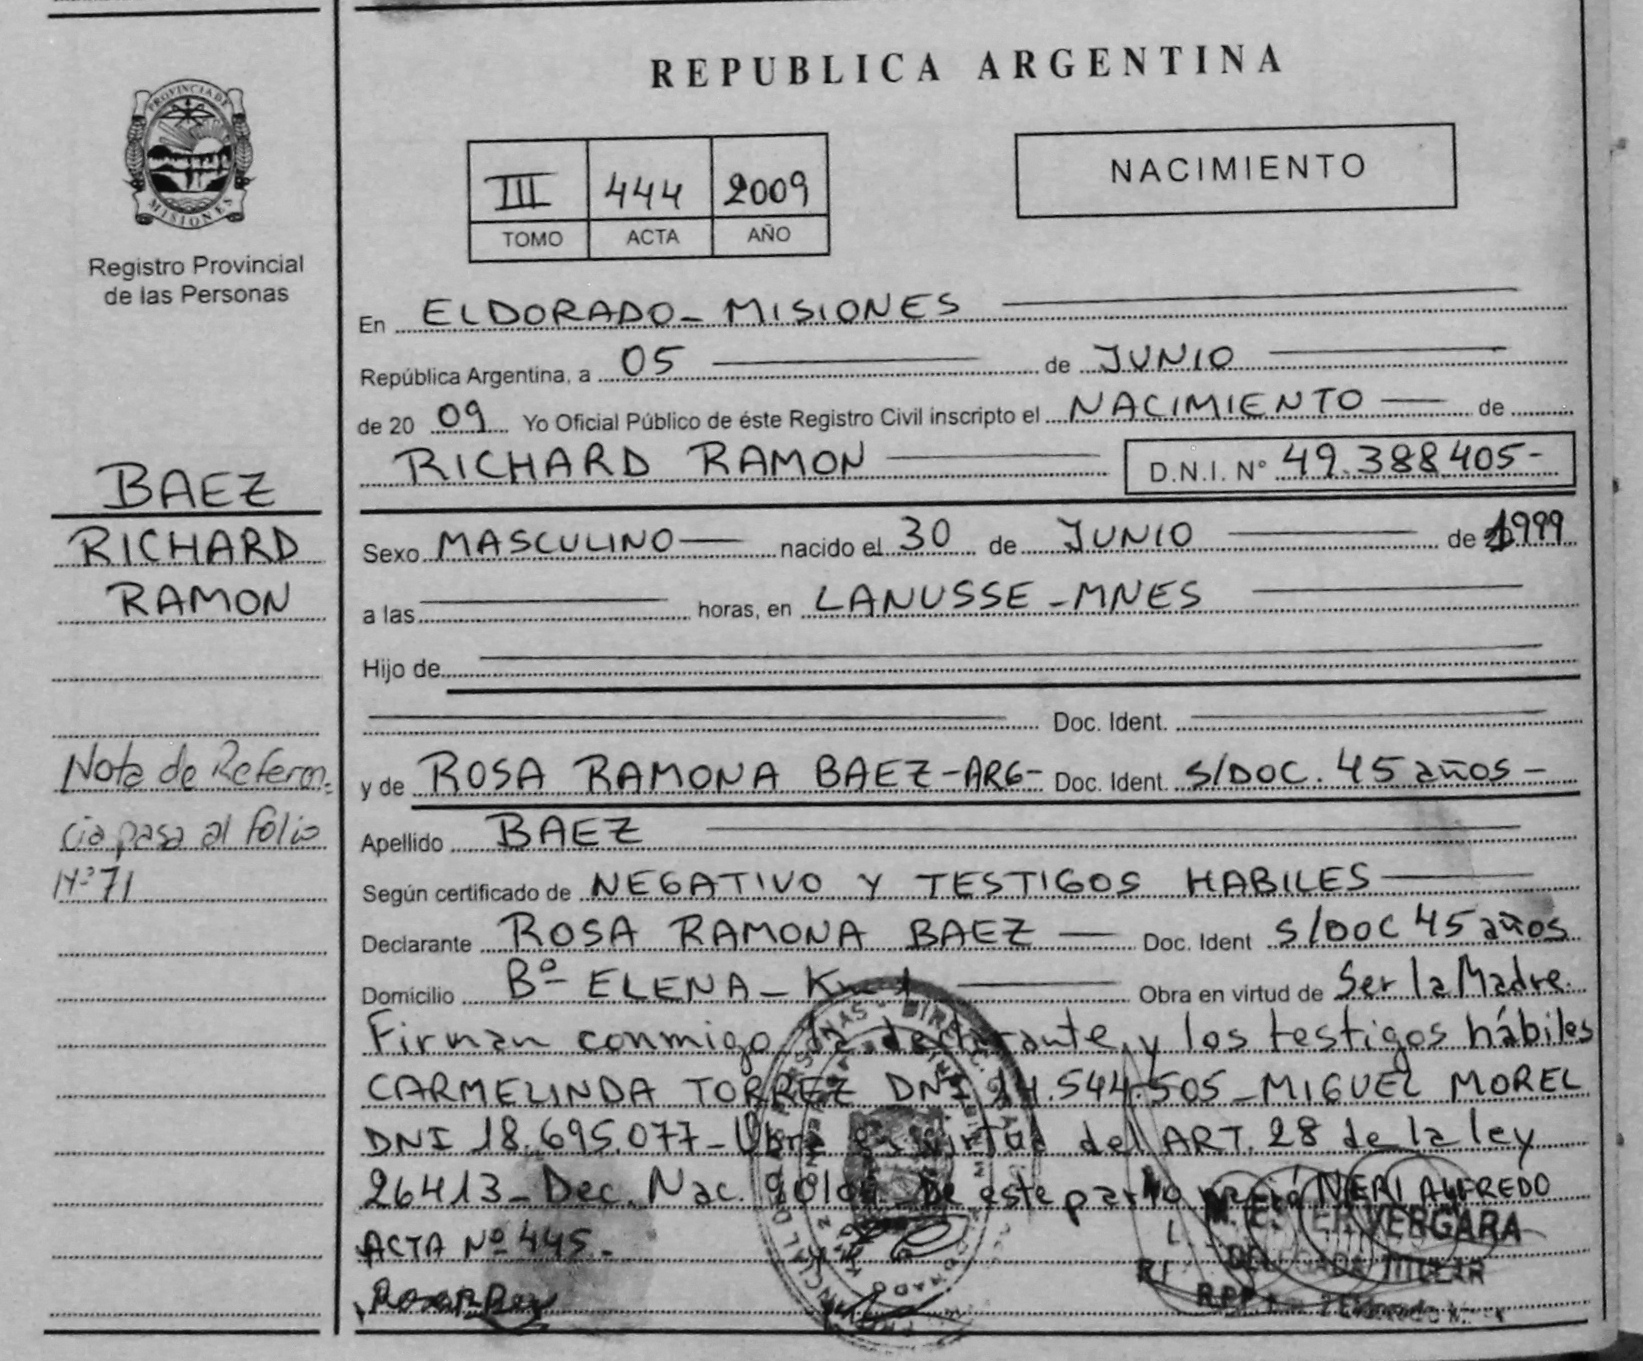 REPUBLICA ARGENTINA
PROVINCIA DE
MISIONES
Registro Provincial
de las Personas
III 444 2009
TOMO ACTA AÑO
NACIMIENTO
En ELDORADO_ MISIONES
República Argentina, a 05 de JUNIO
de 20 09 Yo Oficial Público de éste Registro Civil inscripto el NACIMIENTO de
RICHARD RAMON D.N.I. N° 49.388.405-
BAEZ
RICHARD
RAMON
Sexo MASCULINO nacido el 30 de JUNIO de 1999
a las horas, en LANUSSE - MNES
Hijo de
Doc. Ident.
y de ROSA RAMONA BAEZ-ARG- Doc. Ident. S/DOC. 45 años -
Nota de Referen-
cia pasa al folio
Nº 71
Apellido BAEZ
Según certificado de NEGATIVO Y TESTIGOS HABILES
Declarante ROSA RAMONA BAEZ Doc. Ident S/DOC 45 años
Domicilio Bº ELENA - Km 1 Obra en virtud de Ser la Madre.
Firman conmigo la declarante y los testigos hábiles
CARMELINDA TORREZ DNI .544.505 _ MIGUEL MOREL
DNI 18.695.077 - Obra en virtud del ART. 28 de la ley
26413 - Dec. Nac. De este parto nació NERI ALFREDO
ACTA Nº 445 -
VERGARA
DELEGADA TITULAR